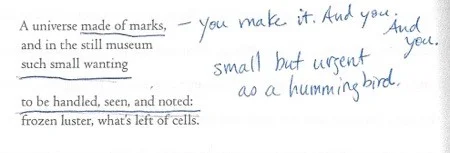 A universe made of marks,
and in the still museum
such small wanting
to be handled, seen, and noted:
frozen luster, what's left of cells.
– you make it. And you. And
you.
small but urgent
as a hummingbird.